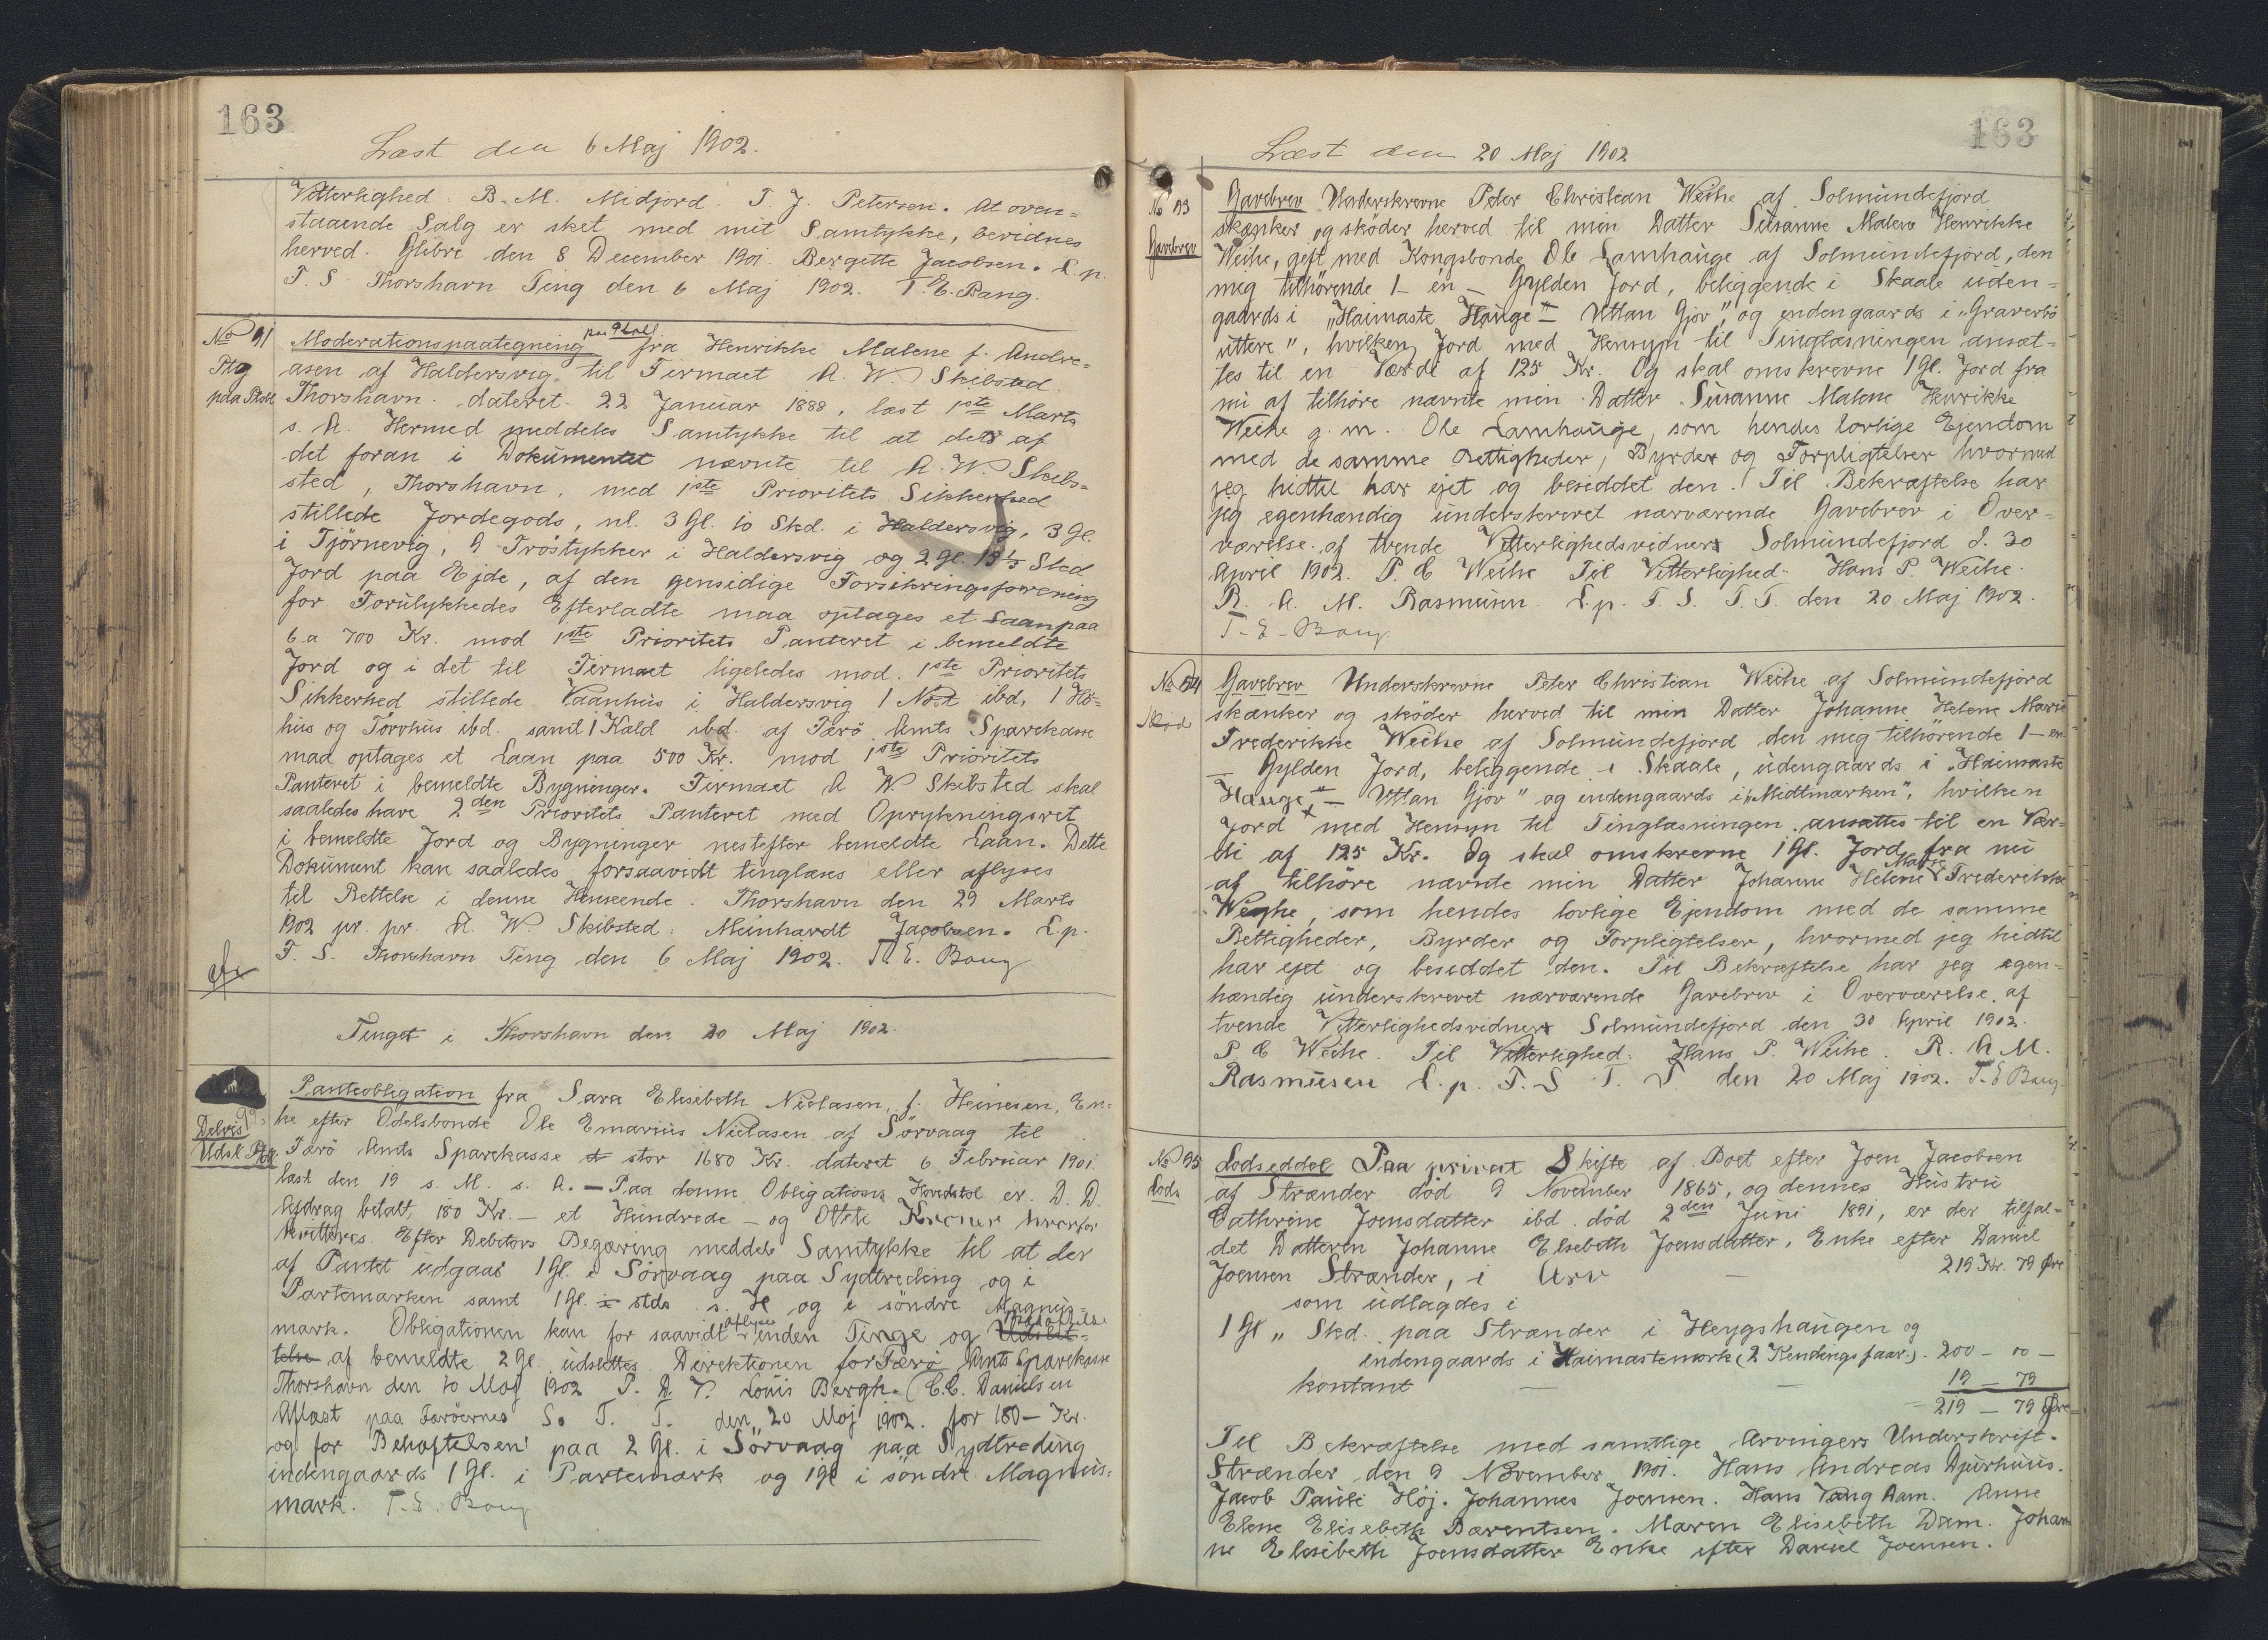 163
Læst den 6 Maj 1902.
Vitterlighed. B. M. Midjord. T. J. Petersen. At oven-
staaende Salg er sket med mit Samtykke, bevidnes
herved. Glibre den 8 December 1901. Bergette Jacobsen. L. p.
F. S Thorshavn Ting den 6 Maj 1902. T. E. Bang.
No 91
Ptg
paa Pobl
Moderationspaategning paa Pobl. fra Henrikke Malene f. Andre-
asen af Haldersvig til Firmaet A. W. Skibsted
Thorshavn. dateret 22 Januar 1888, læst 1ste Marts
s. A. Hermed meddeles Samtykke til at der af
det foran i Dokumentet nævnte til A. W. Skib-
sted, Thorshavn, med 1ste Prioritets Sikkerhed
stillede Jordegods, nl. 3 Gl. 10 Skd. i Haldersvig, 3 Gl.
i Tjørnevig, 9 Trøstykker i Haldersvig og 2 Gl. 13 1/3 Skd
Jord paa Ejde, af den gensidige Forsikringsforening
for Forulykkedes Efterladte maa optages et Laan paa
6 a 700 Kr. mod 1ste Prioritets Panteret i bemeldte
Jord og i det til Firmaet ligeledes mod 1ste Prioritets
Sikkerhed stillede Vaanhus i Haldersvig 1 Nøst ibd, 1 Hö-
hus og Törvhus ibd. samt 1 Kald ibd. af Færö Amts Sparekasse
maa optages et Laan paa 500 Kr. mod 1ste Prioritets
Panteret i bemeldte Bygninger. Firmaet A W. Skibsted skal
saaledes have 2den Prioritets Panteret med Oprykningsret
i bemeldte Jord og Bygninger nestefter bemeldte Laan. Dette
Dokument kan saaledes forsaavidt tinglæses eller aflyses
til Rettelse i denne Henseende. Thorshavn den 29 Marts
1902 pr. pr. A. W. Skibsted: Meinhardt Jacobsen. L. p.
F. S. Thorshavn Ting den 6 Maj 1902. T. E. Bang
Tinget i Thorshavn den 20 Maj 1902.
92
Delvis
Udsl. Pobl.
Panteobligation fra Sara Elisebeth Niclasen, f. Heinesen, En-
ke efter Odelsbonde Ole Emarius Niclasen af Sörvaag til
Færö Amts Sparekasse st stor 1680 Kr. dateret 6 Februar 1901.
læst den 19 s. M. s. A. - Paa denne Obligations Hovedstol er D. D.
Afdrag betalt, 180 Kr. - et Hundrede - og Otteti Kroner hvorfor
kvitteres. Efter Debitors Begæring meddeles Samtykke til at der
af Pantet udgaar 1 Gl. i Sörvaag paa Sydtreding og i
Partemarken samt 1 Gl. i stds. s. H og i söndre Magnus-
mark. Obligationen kan for saavidt aflyses inden Tinge og Behæftelse Udslet-
telse af bemeldte 2 Gl. udslettes. Direktionen for Færö Amts Sparekasse
Thorshavn den 10 Maj 1902 P. D. V. Louis Bergh. (C. C. Danielsen
Aflæst paa Færöernes S. T. T. den 20 Maj 1902. for 180 - Kr.
og for Behæftelsen paa 2 Gl. i Sörvaag paa Sydtreding
indengaards 1 Gl. i Partemark og 1 Gl i söndre Magnus-
mark. T. E. Bang
163
Læst den 20 Maj 1902
No 93
Gavebrev
Gavebrev Underskrevne Peter Christian Weihe af Solmundefjord
skænker og sköder herved til min Datter Susanne Malene Henrikke
Weihe, gift med Kongsbonde Ole Lamhauge af Solmundefjord, den
mig tilhörende 1 - en - Gylden Jord, beliggende i Skaale uden-
gaards i "Haimaste Hauge" - Uttan Gjov", og indengaards i "Graverbö
uttere", hvilken Jord med Hensyn til Tinglæsningen ansæt-
tes til en Værdi af 125 Kr. Og skal omskrevne 1 Gl. Jord fra
nu af tilhöre nævnte min Datter Susanne Malene Henrikke
Weihe g. m. Ole Lamhauge, som hendes lovlige Ejendom
med de samme Rettigheder, Byrder og Forpligtelser hvormed
jeg hidtil har ejet og besiddet den. Til Bekræftelse har
jeg egenhændig underskrevet nærværende Gavebrev i Over-
værelse af tvende Vitterlighedsvidner Solmundefjord d. 30
April 1902. P. C Weihe Til Vitterlighed. Hans P. Weihe.
R. A. M. Rasmusen. L. p. F. S. T. T. den 20 Maj 1902.
T. E. Bang
No 94
Skjöde
Gavebrev Underskrevne Peter Christian Weihe af Solmundefjord
skænker og sköder herved til min Datter Johanne Helene Marie
Frederikke Weihe af Solmundefjord den mig tilhörende 1 - en
- Gylden Jord, beliggende i Skaale, udengaards i "Haimaste
Hauge" - Uttan Gjov" og indengaards i "Midtmarken", hvilken
Jord med Hensyn til Tinglæsningen ansættes til en Vær-
di af 125 Kr. Og skal omskrevne 1 Gl. Jord fra nu
af tilhöre nævnte min Datter Johanne Helene Marie Frederikke
Weyhe, som hendes lovlige Ejendom med de samme
Rettigheder, Byrder og Forpligtelser, hvormed jeg hidtil
har ejet og besiddet den. Til Bekræftelse har jeg egen-
hændig underskrevet nærværende Gavebrev i Overværelse af
tvende Vitterlighedsvidner Solmundefjord den 30 April 1902.
P C Weihe. Til Vitterlighed. Hans P. Weihe. R. A M.
Rasmusen L. p. F. S T. T. den 20 Maj 1902. T. E Bang.
No 95
Lods
Lodseddel Paa privat Skifte af Boet efter Joen Jacobsen
af Strænder död 9 November 1865, og dennes Hustru
Cathrine Joensdatter ibd. död 2den Juni 1891, er der tilfal-
det Datteren Johanne Elsebeth Joensdatter, Enke efter Daniel
Joensen Strænder, i Arv - 219 Kr. 79 Øre
som udlagdes i
1 Gl " Skd. paa Strænder i Heygshaugen og
indengaards i Haimastemørk (2 Kendingsfaar). 200 - 00 -
kontant - - 19 - 79
219 - 79 Øre
Til Bekræftelse med samtlige Arvingers Underskrift.
Strænder den 9 November 1901. Hans Andreas Djurhuus.
Jacob Pauli Höj. Johannes Joensen. Hans Vang Dam. Anne
Elene Elisebeth Bærentsen. Maren Elisebeth Dam. Johan
ne Elisebeth Joensdatter Enke efter Daniel Joensen.